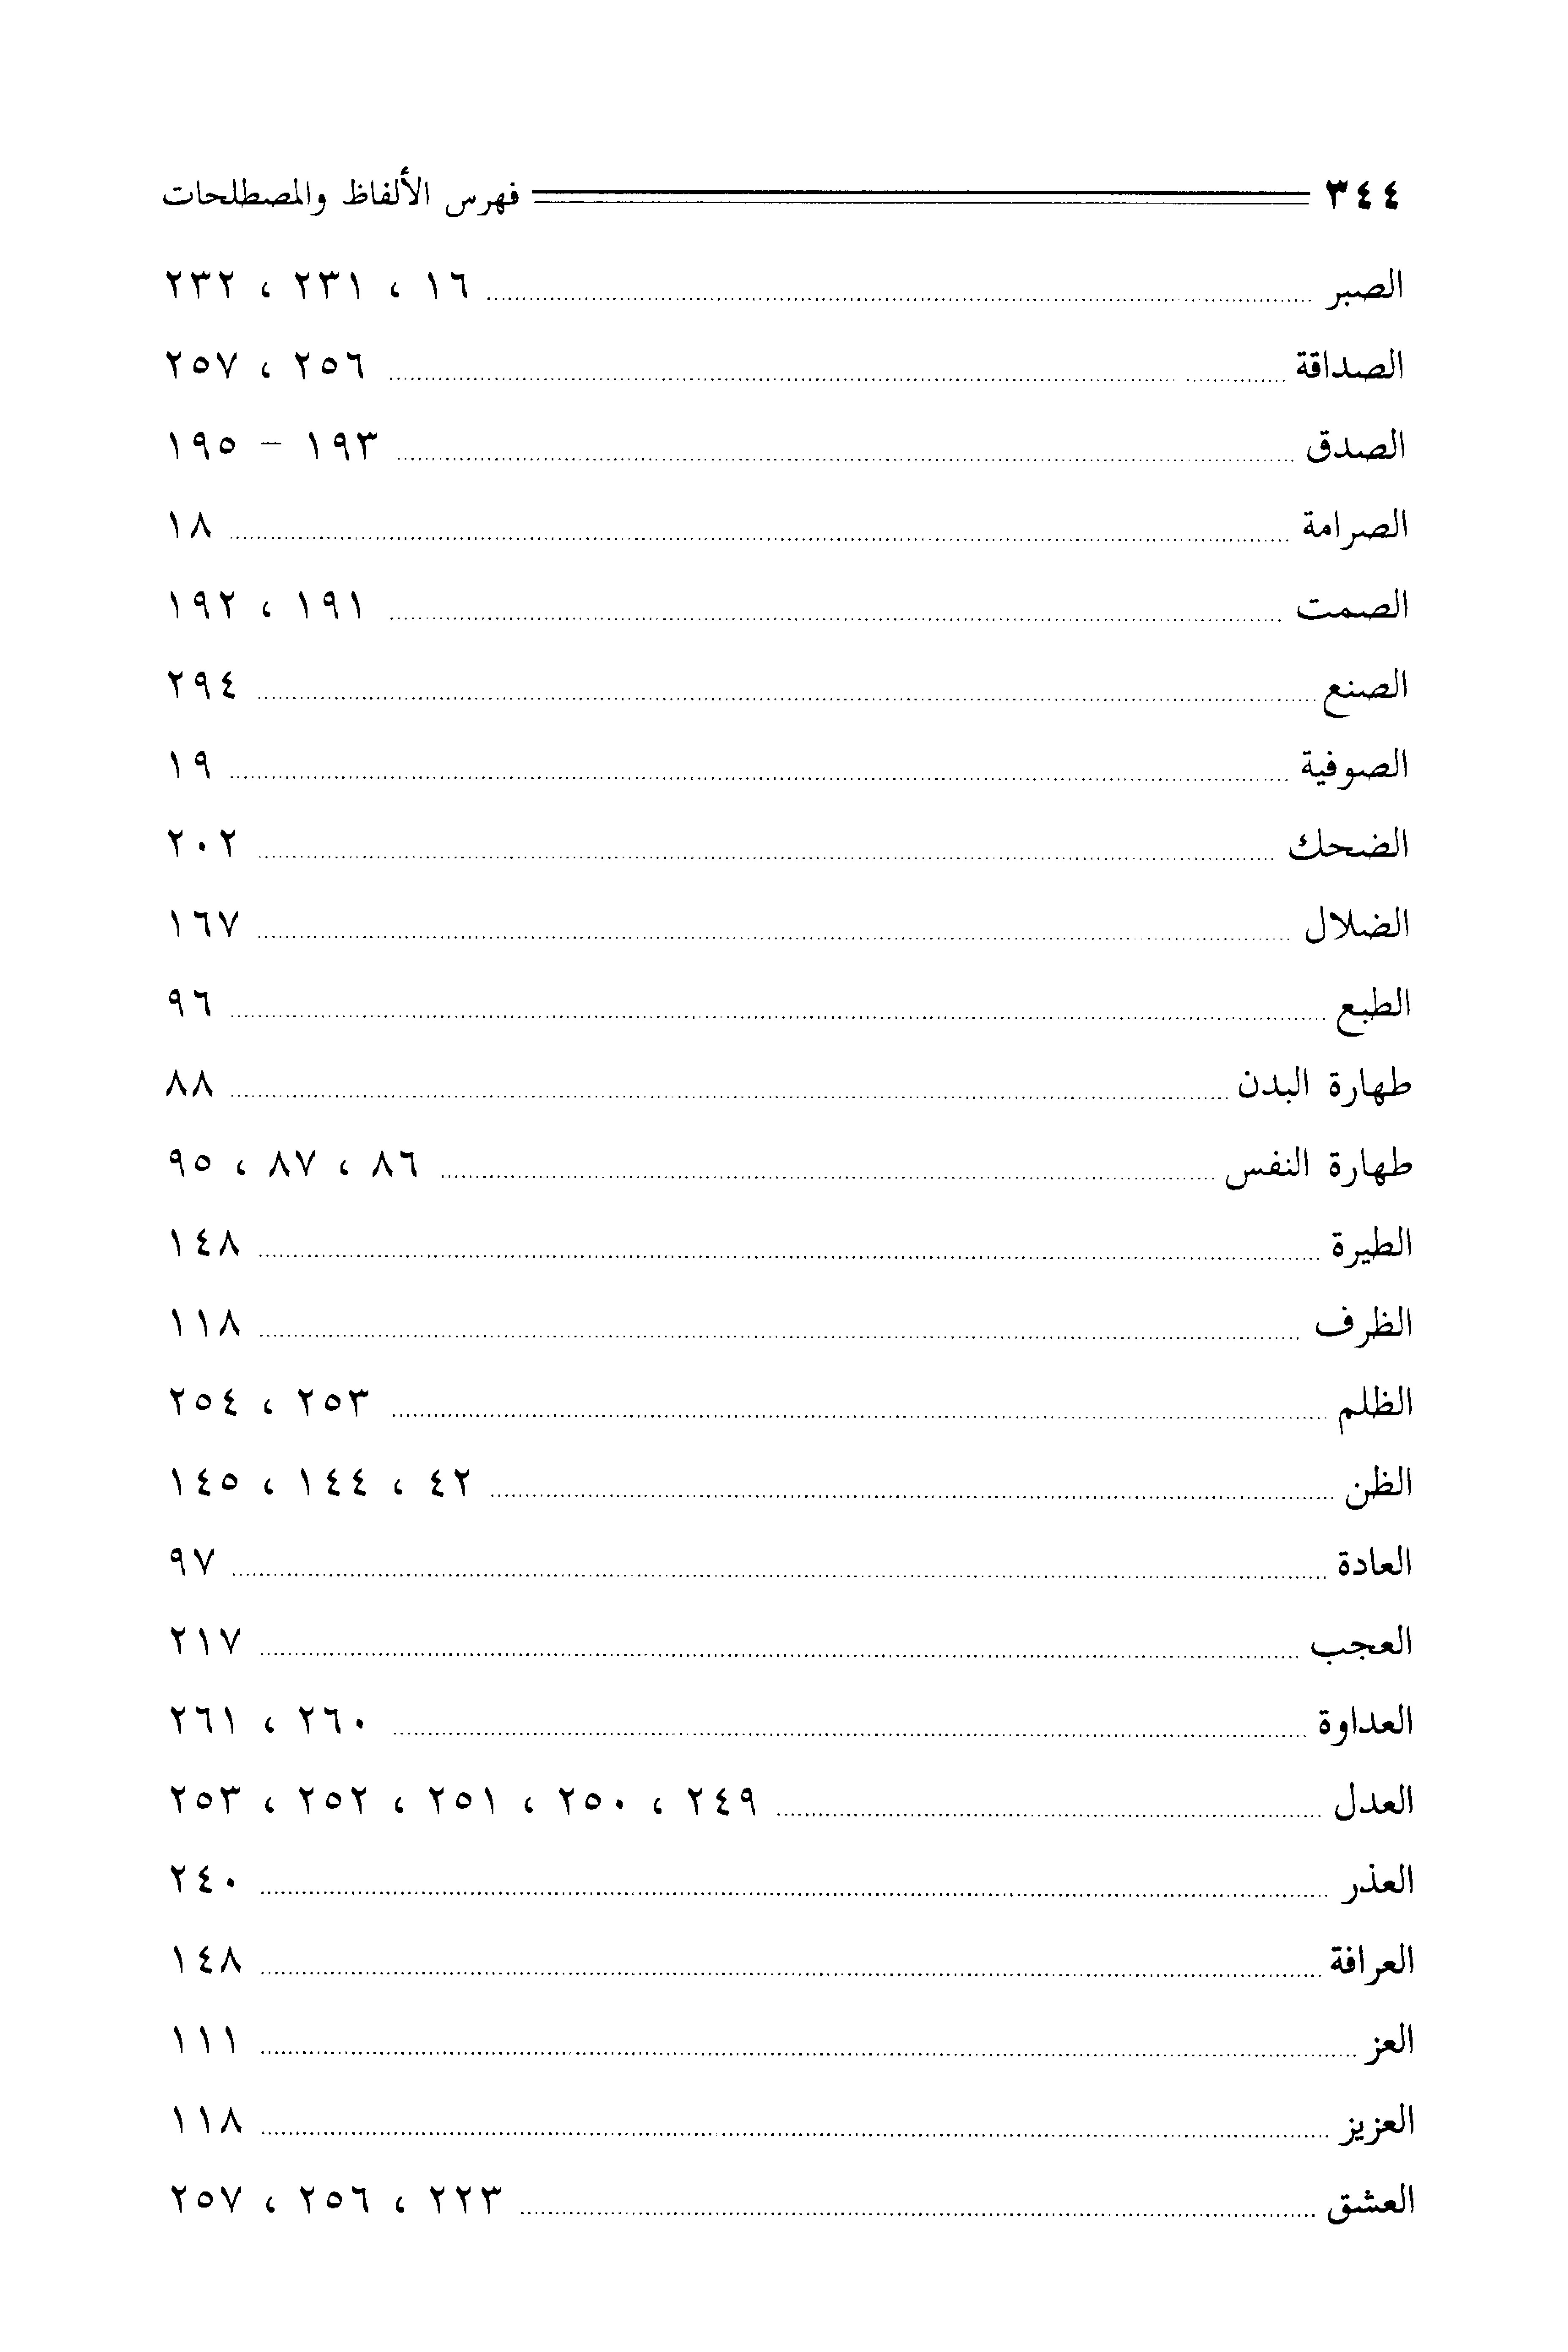 ٣٤٤ فهرس الألفاظ والمصطلحات
الصبر ١٦ ، ٢٣١ ، ٢٣٢
الصداقة ٢٥٦ ، ٢٥٧
الصدق ١٩٣ – ١٩٥
الصرامة ١٨
الصمت ١٩١ ، ١٩٢
الصنع ٢٩٤
الصوفية ١٩
الضحك ٢٠٢
الضلال ١٦٧
الطبع ٩٦
طهارة البدن ٨٨
طهارة النفس ٨٦ ، ٨٧ ، ٩٥
الطيرة ١٤٨
الظرف ١١٨
الظلم ٢٥٣ ، ٢٥٤
الظن ٤٢ ، ١٤٤ ، ١٤٥
العادة ٩٧
العجب ٢١٧
العداوة ٢٦٠ ، ٢٦١
العدل ٢٤٩ ، ٢٥٠ ، ٢٥١ ، ٢٥٢ ، ٢٥٣
العذر ٢٤٠
العرافة ١٤٨
العز ١١١
العزيز ١١٨
العشق ٢٢٣ ، ٢٥٦ ، ٢٥٧